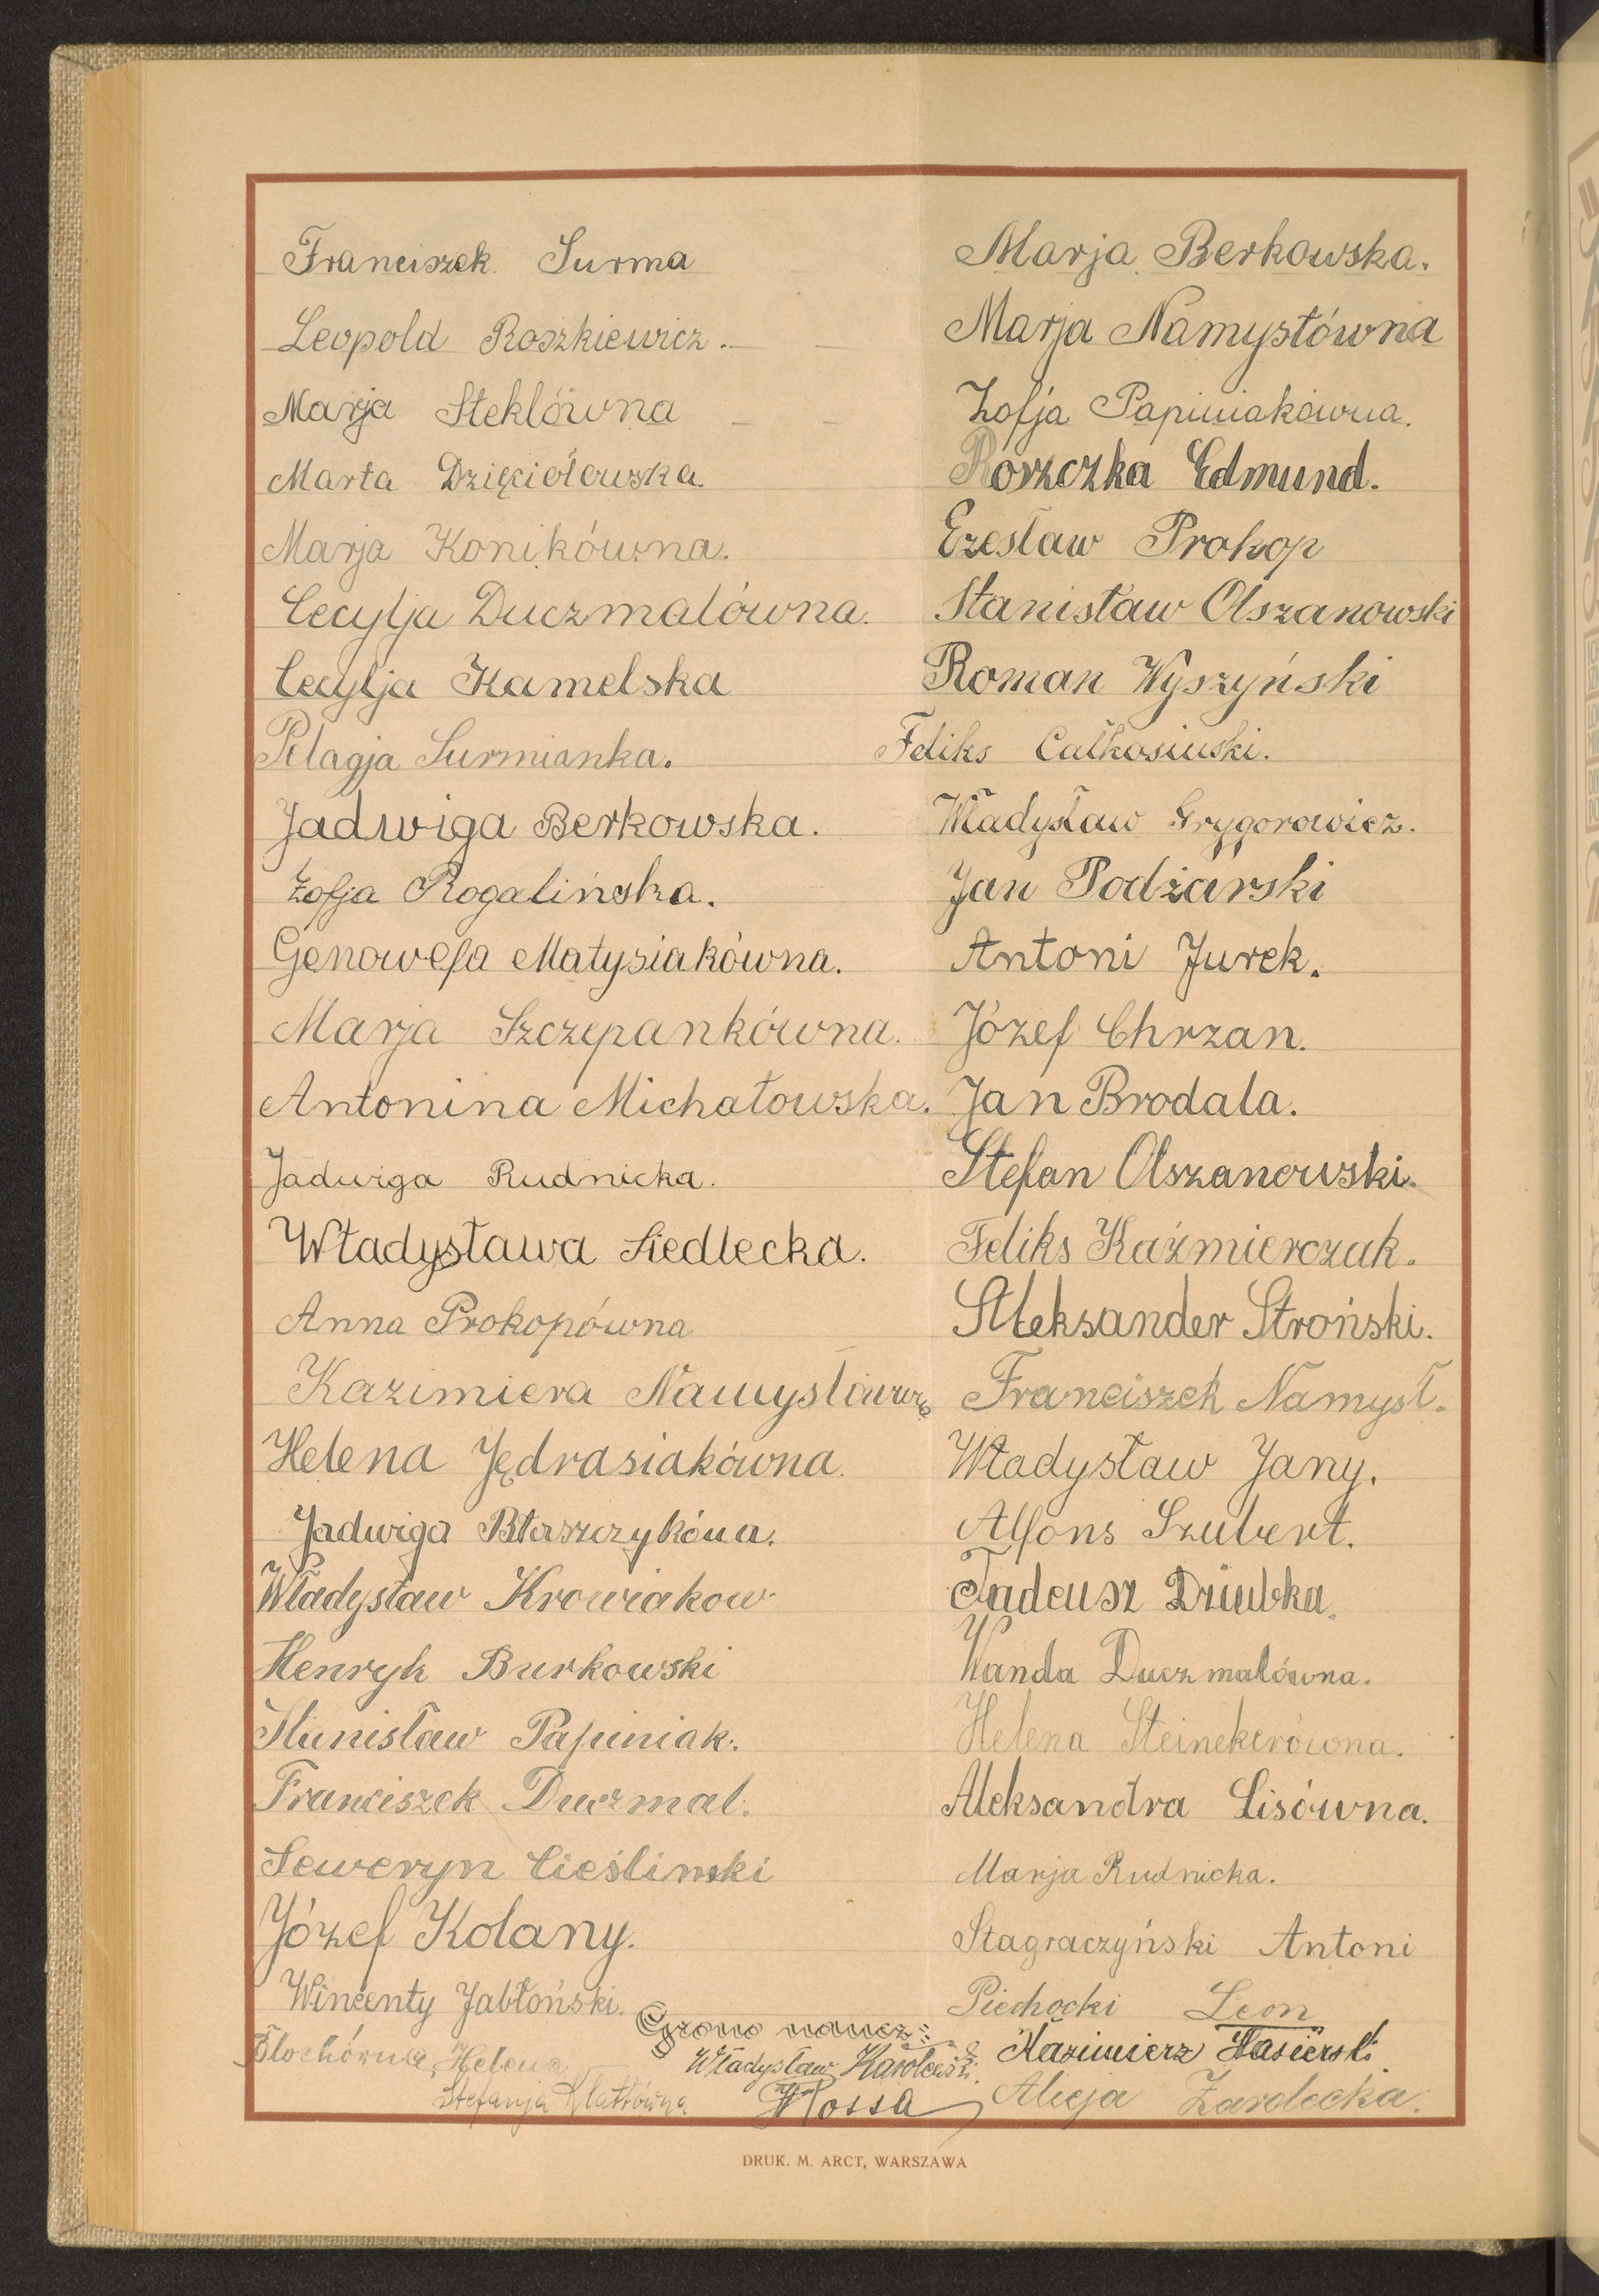 Franciszek Surma
Leopold Roszkiewicz.
Marja Steklówna
Marta Dzięciołowska.
Marja Konikówna.
Cecylja Duczmalówna.
Cecylja Kamelska
Pelagja Surmianka.
Jadwiga Berkowska.
Zofja Rogalińska.
Genowefa Matysiakówna.
Marja Szczepankówna.
Antonina Michałowska.
Jadwiga Rudnicka.
Władysława Siedlecka.
Anna Prokopówna
Kazimiera Namysłówna
Helena Jędrasiakówna.
Jadwiga Błaszczykówa.
Władysław Krowiakow
Henryk Burkowski
Stanisław Papiniak.
Franciszek Duczmal.
Seweryn Cieślinski
Józef Kolany.
Wincenty Jabłoński.
Helena
Stefanja
Marja Berkowska.
Marja Namysłówna
Zofja Papiniakówna.
Roszczka Edmund.
Czesław Prokop
Stanisław Olszanowski
Roman Wyszyński
Feliks Całkosiński.
Władysław Grygorowicz.
Jan Podżarski
Antoni Jurek.
Józef Chrzan.
Jan Brodala.
Stefan Olszanowski.
Feliks Kaźmierczak.
Aleksander Stroński.
Franciszek Namysł.
Władysław Jany.
Alfons Szubert.
Tadeusz Dziubka.
Wanda Duczmalówna.
Helena Steinekerówna.
Aleksandra Lisówna.
Marja Rudnicka.
Stagraczyński Antoni
Piechocki Leon
Grono naucz.:
Władysław
Kossa
Kazimierz Kasierski
Alicja Zardecka.
DRUK. M. ARCT, WARSZAWA